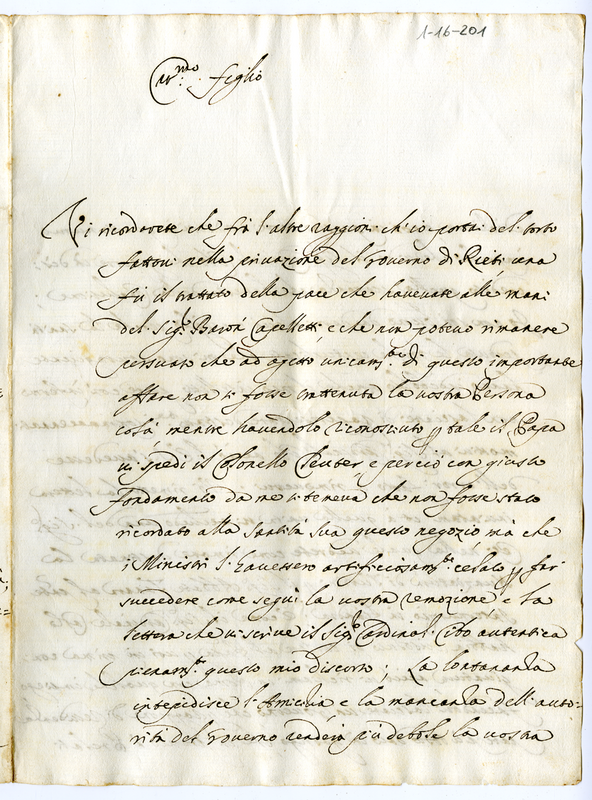 1-16-201
Car.mo figlio
Vi ricordarete che frà l'altre raggioni ch'io portai del torto
fattovi nella privazione del governo di Rieti una
fù il trattato della pace che havevate alle mani
del Sig.r Baron Capelletti, e che non potevo rimanere
persuaso che ad ogetto unicam.te di questo importante
affare non vi fosse trattenuta la vostra Persona
colà mentre havendolo riconosciuto p tale il Papa
vi spedì il Colonello e perciò con giusto
fondamento da me si teneva che non fosse stato
ricordato alla Santità sua questo negozio mà che
i Ministri l'havessero artificiosam.te celato p far
succedere come seguì la vostra remozione e la
lettera che vi scrive il Sig.r Cardinal Cibo autentica
pienam.te questo mio discorso; La lontananza
intepidisce l'Amicizia e la mancanza dell'auto=
rità del Governo renderà più debole la vostra